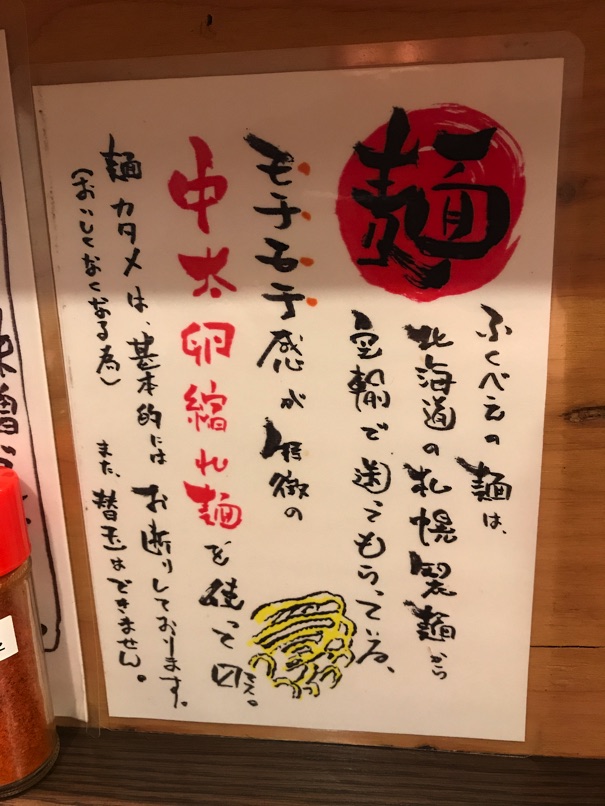 麺
ふくべえの麺は、
北海道の札幌製麺から
空輸で送ってもらっている、
モチモチ感が特徴の
中太卵縮れ麺を使って〼
麺カタメは、基本的にはお断りしております。
(おいしくなくなる為)
また、替玉はできません。
味噌